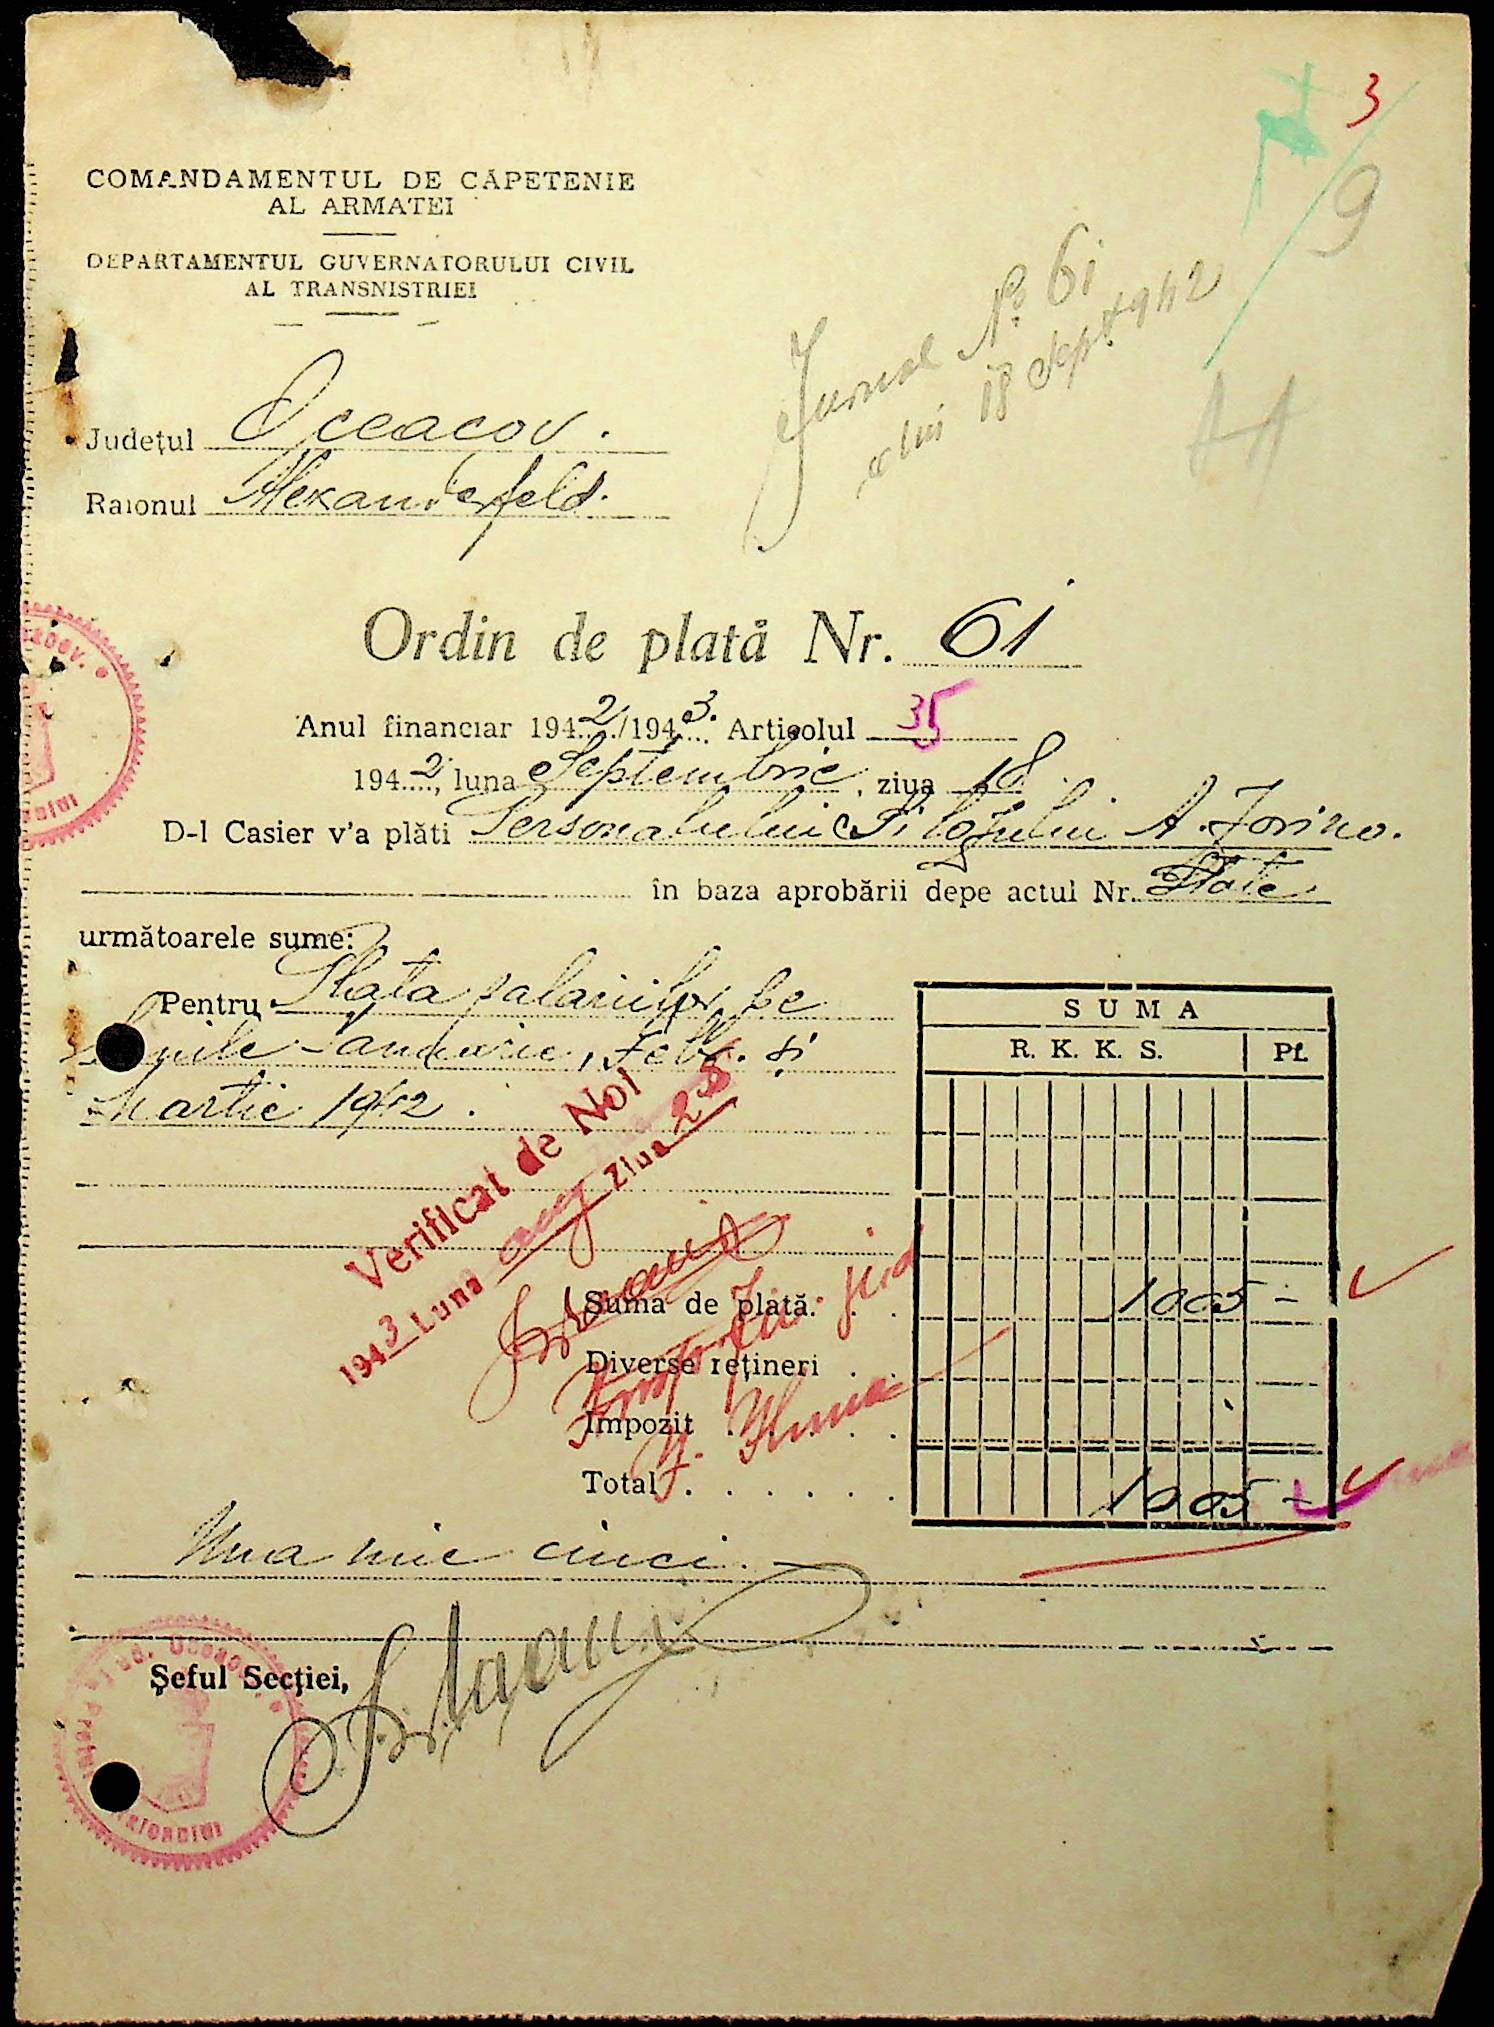 3
9
COMANDAMENTUL DE CĂPETENIE
AL ARMATEI
DEPARTAMENTUL GUVERNATORULUI CIVIL
AL TRANSNISTRIEI
Jurnal No 61
din 18 Sept 1942
Județul Oceacov.
Raionul Alexanderfeld.
Ordin de plată Nr. 61
Anul financiar 1942/1943. Articolul 35
1942, luna Septembrie, ziua 18
D-l Casier v'a plăti Personalului A.
în baza aprobării depe actul Nr. State
următoarele sume:
Pentru Plata salariilor pe
lunile Ianuarie, Febr. și
Martie 1942.
SUMA
R. K. K. S. Pf.
Verificat de Noi
1943 Luna aug Ziua 28
Suma de plată. 1005 –
Diverse rețineri
Impozit
Total 1005 –
Una mie cinci.
Șeful Secției,